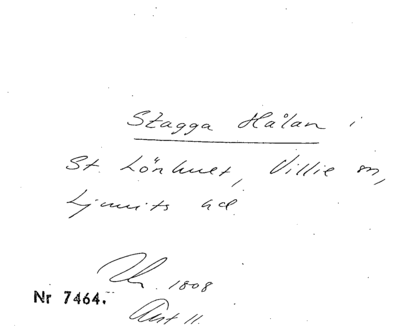 Stagga Hålan i
St. Lönhult, Villie sn,
Ljunits hd.
1808
Nr 7464.
Ant 11.